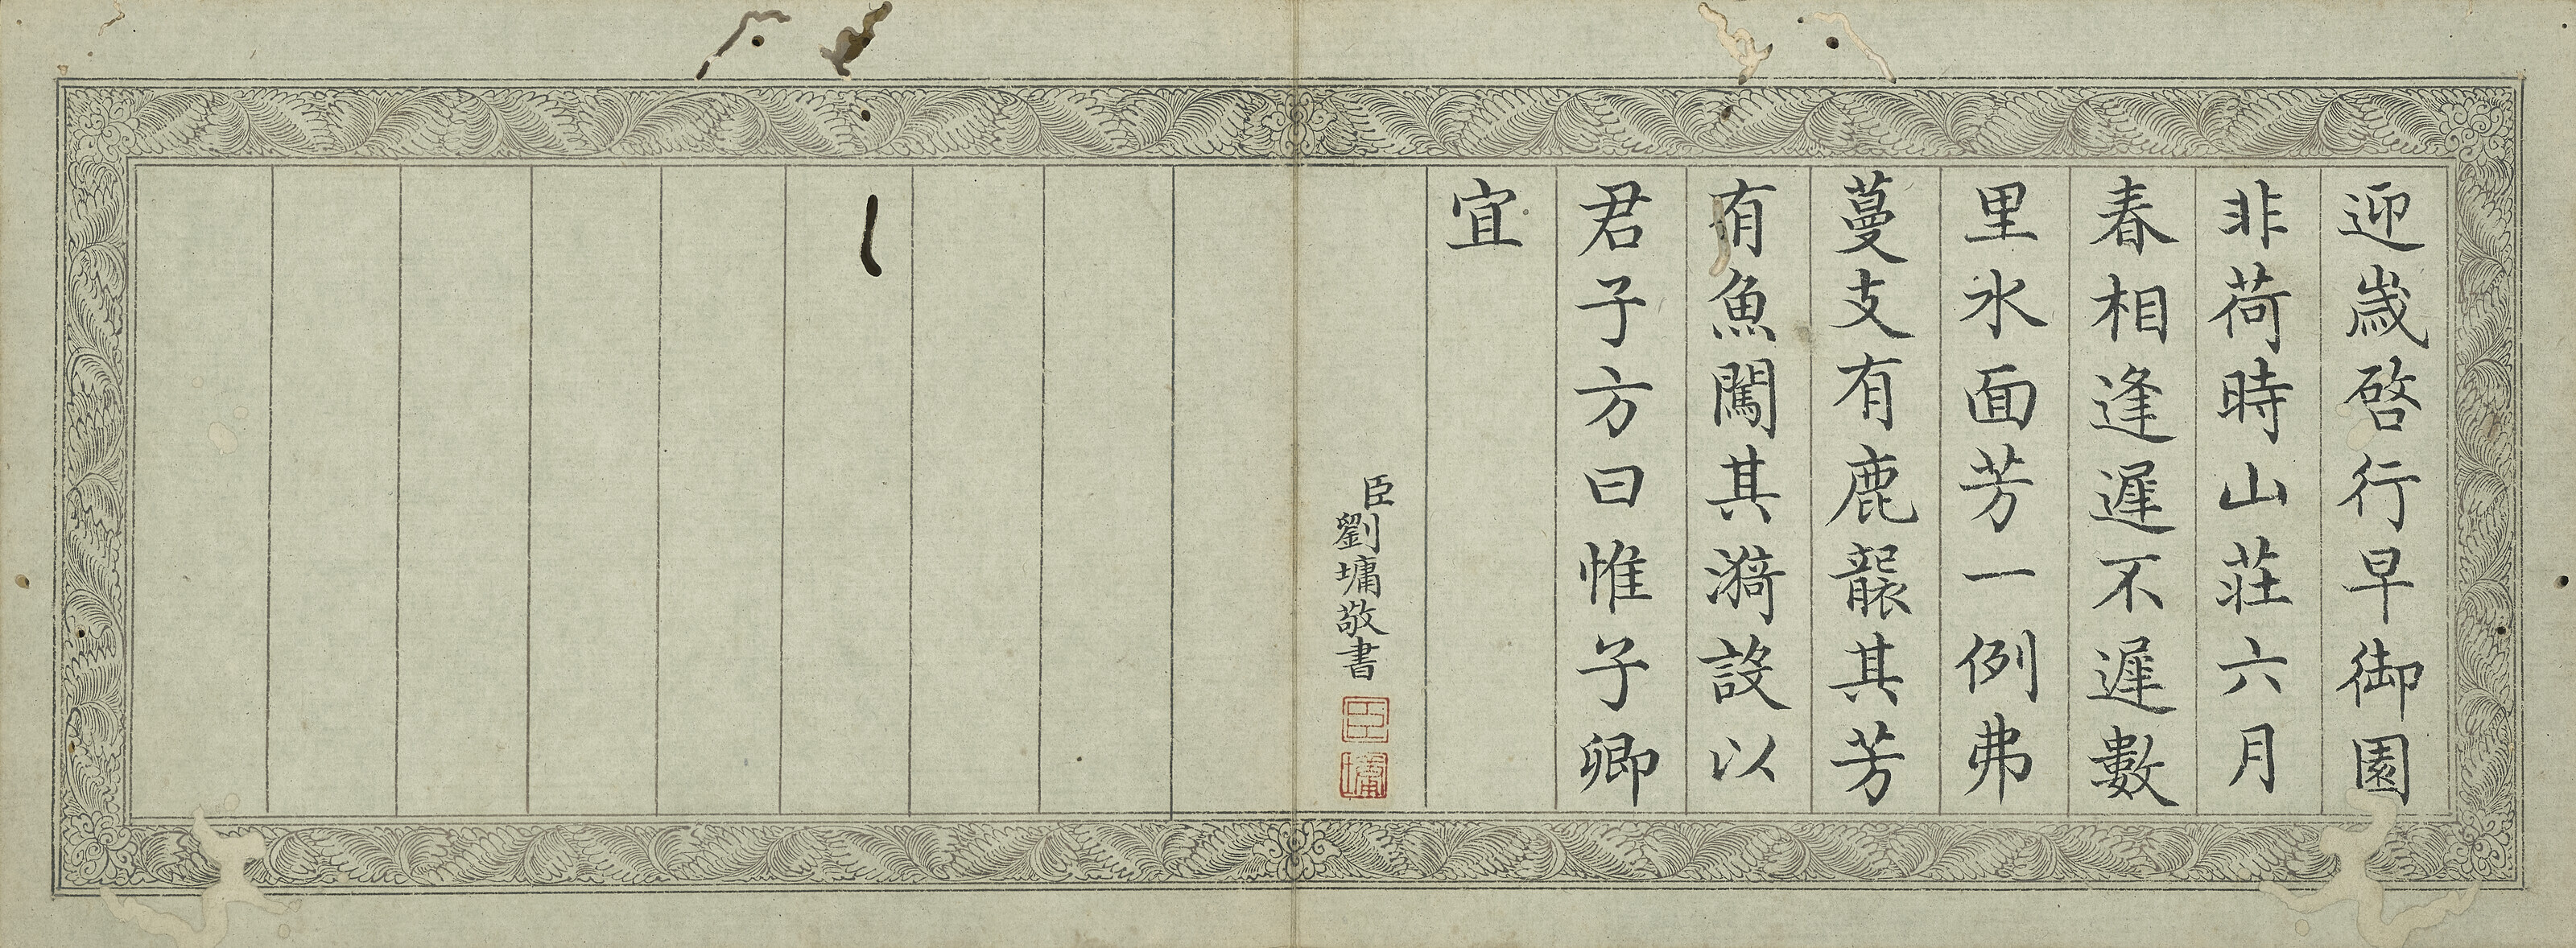 迎歲啓行早御園
非荷時山莊六月
春相逢遲不遲數
里水面芳一例弗
蔓支有鹿襲其芳
有魚闖其漪設以
君子方曰惟子卿
宜
臣劉墉敬書
臣
墉